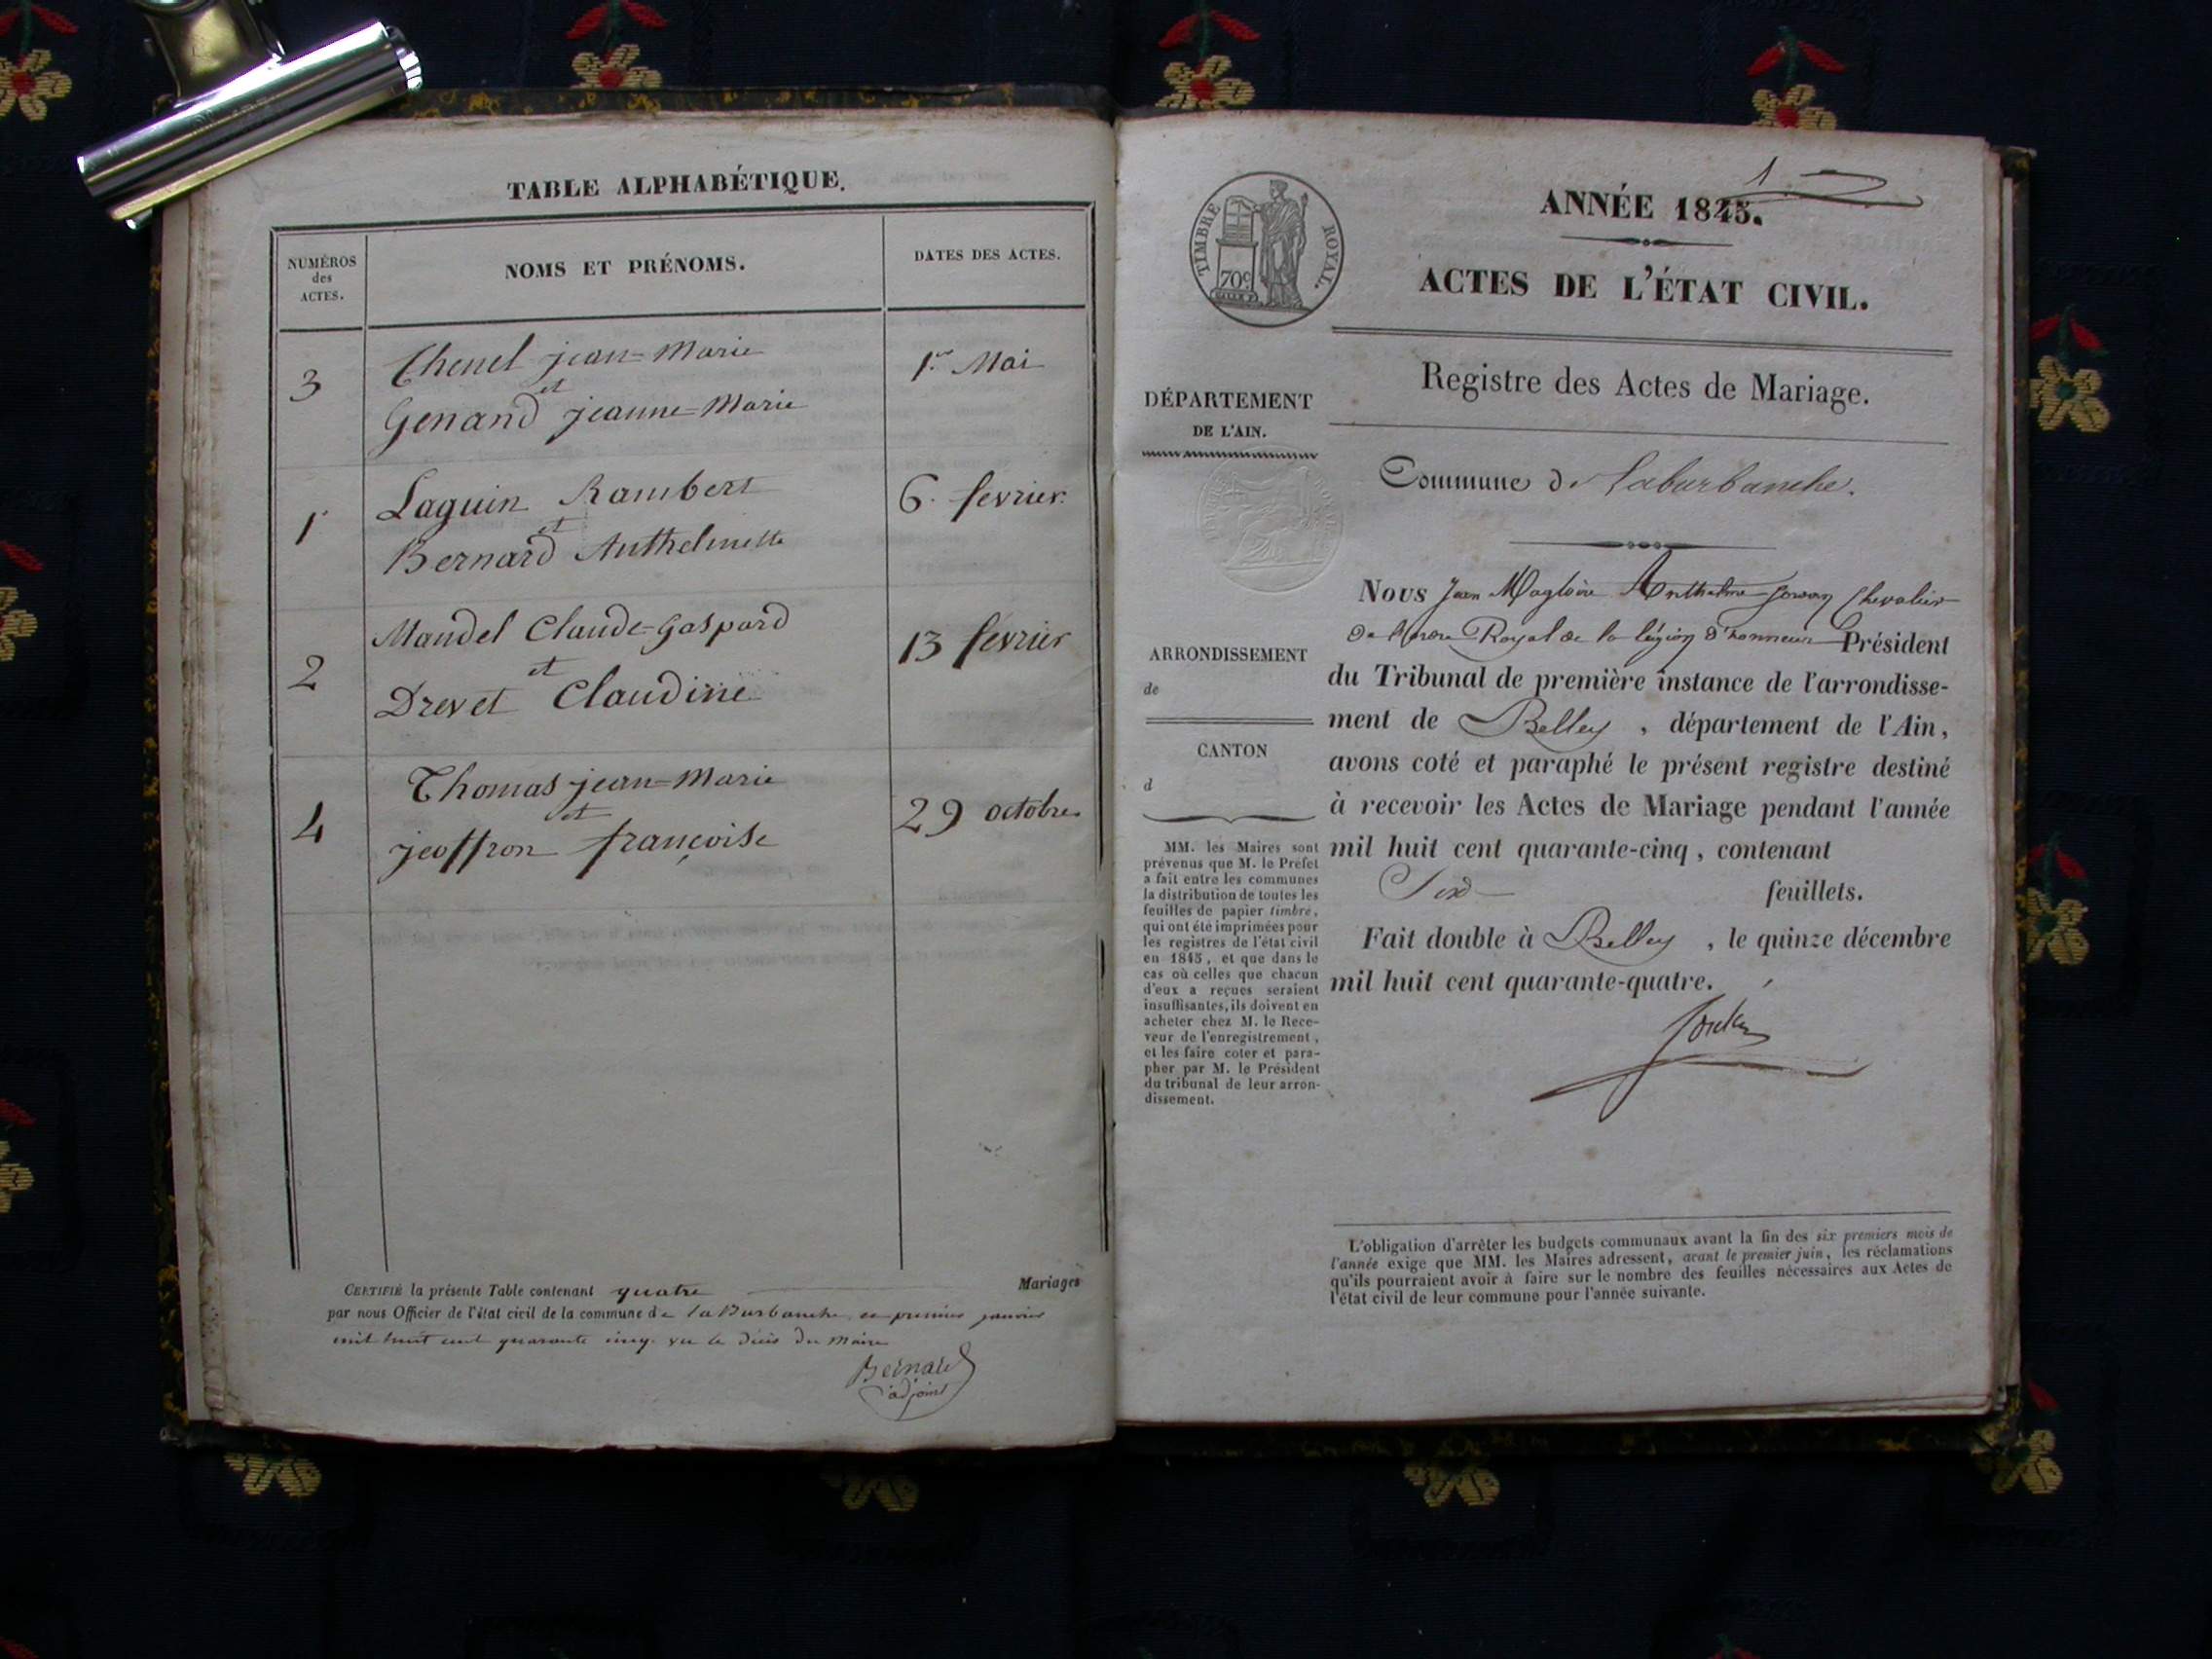 TABLE ALPHABÉTIQUE.
NUMÉROS
des
ACTES.
NOMS ET PRÉNOMS.
DATES DES ACTES.
3
Chenel jean-Marie
et
Genand jeanne-Marie
1er Mai
1
Laguin Rambert
et
Bernard Anthelmette
6. fevrier.
2
Mandel Claude-Gaspard
et
Drevet Claudine
13 février
4
Thomas jean-Marie
et
jeoffron françoise
29 octobre
CERTIFIÉ la présente Table contenant quatre Mariages
par nous Officier de l'état civil de la commune de la Burbanche, ce premier janvier
mil huit cent quarante cinq. vu le décès du Maire
Bernard
adjoint
1
TIMBRE ROYAL.
70c
ANNÉE 1845.
ACTES DE L'ÉTAT CIVIL.
Registre des Actes de Mariage.
DÉPARTEMENT
DE L'AIN.
Commune de Laburbanche.
ARRONDISSEMENT
de
CANTON
d
MM. les Maires sont
prévenus que M. le Préfet
a fait entre les communes
la distribution de toutes les
feuilles de papier timbré,
qui ont été imprimées pour
les registres de l'état civil
en 1845, et que dans le
cas où celles que chacun
d'eux a reçues seraient
insuffisantes, ils doivent en
acheter chez M. le Rece-
veur de l'enregistrement,
et les faire coter et para-
pher par M. le Président
du tribunal de leur arron-
dissement.
Nous Jean Magloire Anthelme Chevalier
de l'ordre Royal de la légion d'honneur Président
du Tribunal de première instance de l'arrondisse-
ment de Belley, département de l'Ain,
avons coté et paraphé le présent registre destiné
à recevoir les Actes de Mariage pendant l'année
mil huit cent quarante-cinq, contenant
Six feuillets.
Fait double à Belley, le quinze décembre
mil huit cent quarante-quatre.
L'obligation d'arrêter les budgets communaux avant la fin des six premiers mois de
l'année exige que MM. les Maires adressent, avant le premier juin, les réclamations
qu'ils pourraient avoir à faire sur le nombre des feuilles nécessaires aux Actes de
l'état civil de leur commune pour l'année suivante.